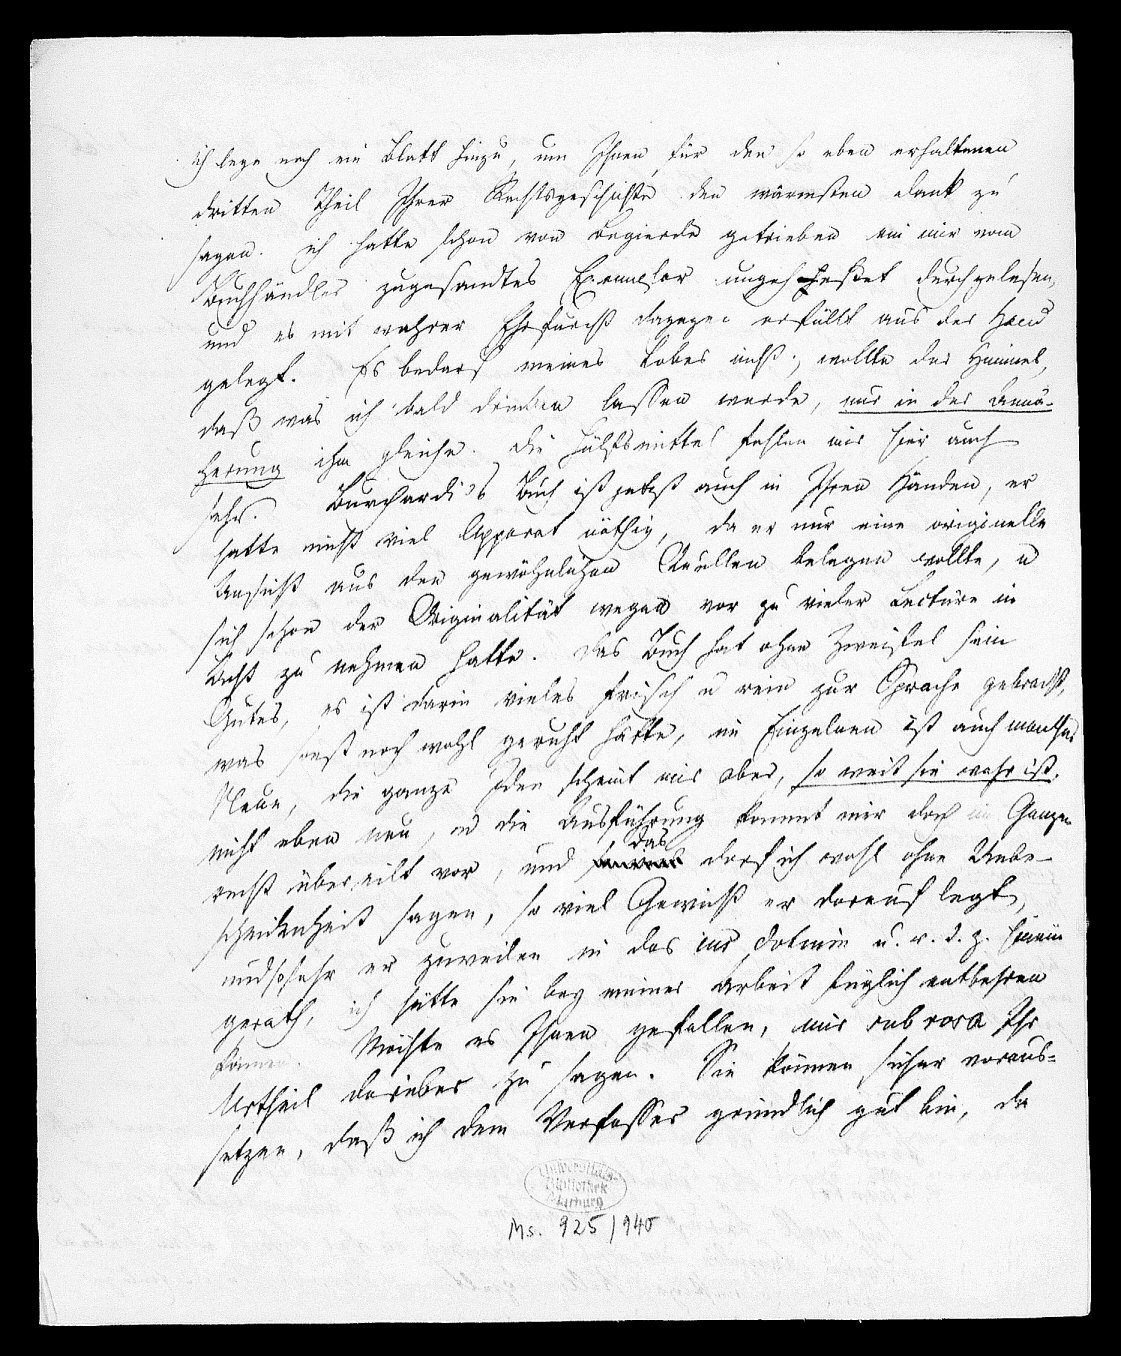 ich lege noch ein Blatt hinzu, um Ihnen für den so eben erhaltenen
dritten Theil Ihrer Rechtsgeschichte den wärmsten Dank zu
sagen. ich hatte schon von Begierde getrieben ein mir vom
Buchhändler zugesandtes Exemplar ungeheftet durchgelesen,
und es mit wahrer Ehrfurcht dagegen erfüllt aus der Hand
gelegt. Es bedarf meines Lobes nicht; wollte der Himmel,
daß was ich bald drucken lassen werde, nur in der Annä-
herung ihm gleiche. Die Hülfsmittel fehlen mir hier auch
sehr. Burchardi's Buch ist jetzt auch in Ihren Händen, er
hatte nicht viel Apparat nöthig, da er nur eine originelle
Ansicht aus den gewöhnlichen Quellen belegen wollte, u
sich schon der Originalität wegen vor zu vieler Lectüre in
Acht zu nehmen hatte. Das Buch hat ohne Zweifel sein
Gutes, es ist darin vieles frisch u rein zur Sprache gebracht,
was sonst noch wohl geruht hätte, im Einzelnen ist auch manches
Neue, die ganze Idee scheint mir aber, so weit sie wahr ist,
nicht eben neu, u die Ausführung kommt mir doch im Ganzen
recht übereilt vor, und das darf ich wohl ohne Unbe-
scheidenheit sagen, so viel Gewicht er darauf legt,
und so sehr er zuweilen in das ius dotmin u. s. d. z. hinein
gerath, ich hätte sie bey meiner Arbeit füglich entbehren
können. Möchte es Ihnen gefallen, mir sub rosa Ihr
Urtheil darüber zu sagen. Sie können sicher voraus-
setzen, daß ich dem Verfasser gründlich gut bin, da
Universitäts-
Bibliothek
Marburg
Ms. 925/940